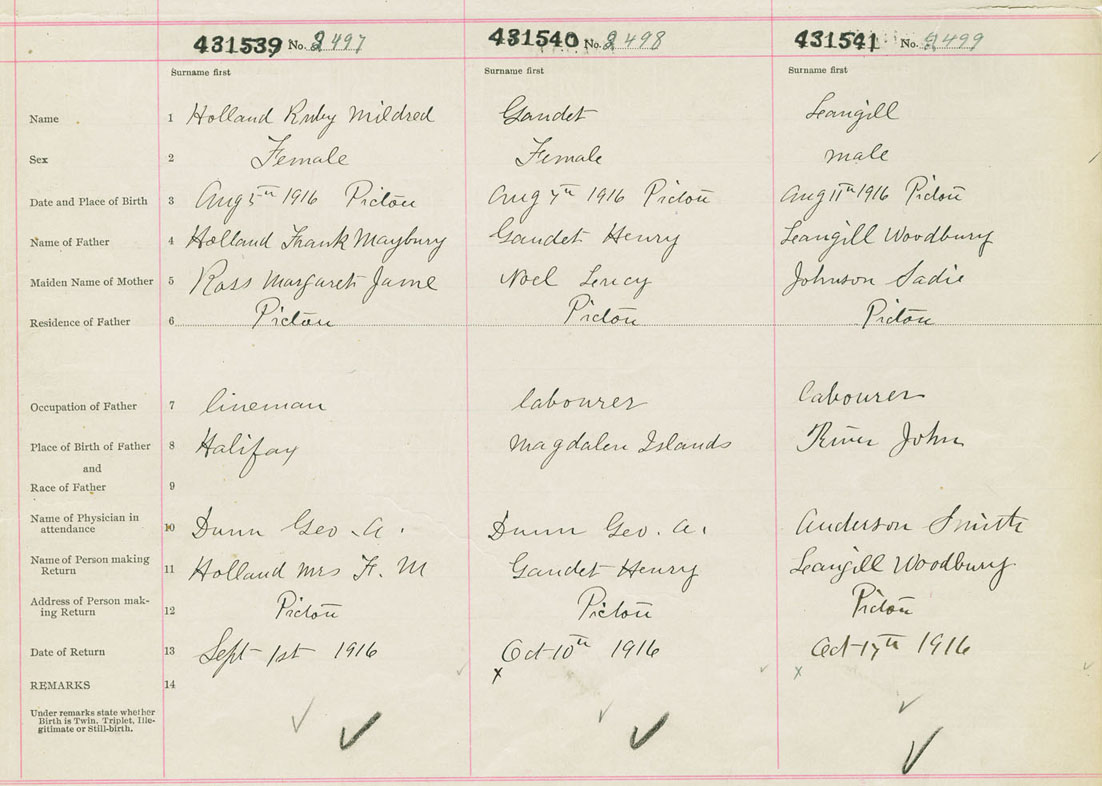 431539 No. 2497 431540 No. 2498 431541 No. 2499
Surname first Surname first Surname first
Name 1 Holland Ruby Mildred Gaudet Leangill
Sex 2 Female Female male
Date and Place of Birth 3 Aug 5th 1916 Pictou Aug 7th 1916 Pictou Aug 11th 1916 Pictou
Name of Father 4 Holland Frank Maybury Gaudet Henry Leangill Woodbury
Maiden Name of Mother 5 Ross Margaret Jane Noel Johnson Sadie
Residence of Father 6 Pictou Pictou Pictou
Occupation of Father 7 lineman labourer labourer
Place of Birth of Father 8 Halifax Magdalen Islands River John
and
Race of Father 9
Name of Physician in
attendance 10 Dunn Geo. A. Dunn Geo. A. Anderson Smith
Name of Person making
Return 11 Holland Mrs F. M Gaudet Henry Leangill Woodbury
Address of Person mak-
ing Return 12 Pictou Pictou Pictou
Date of Return 13 Sept 1st 1916 Oct 10th 1916 Oct 17th 1916
x x
REMARKS 14
Under remarks state whether
Birth is Twin, Triplet, Ille-
gitimate or Still-birth.